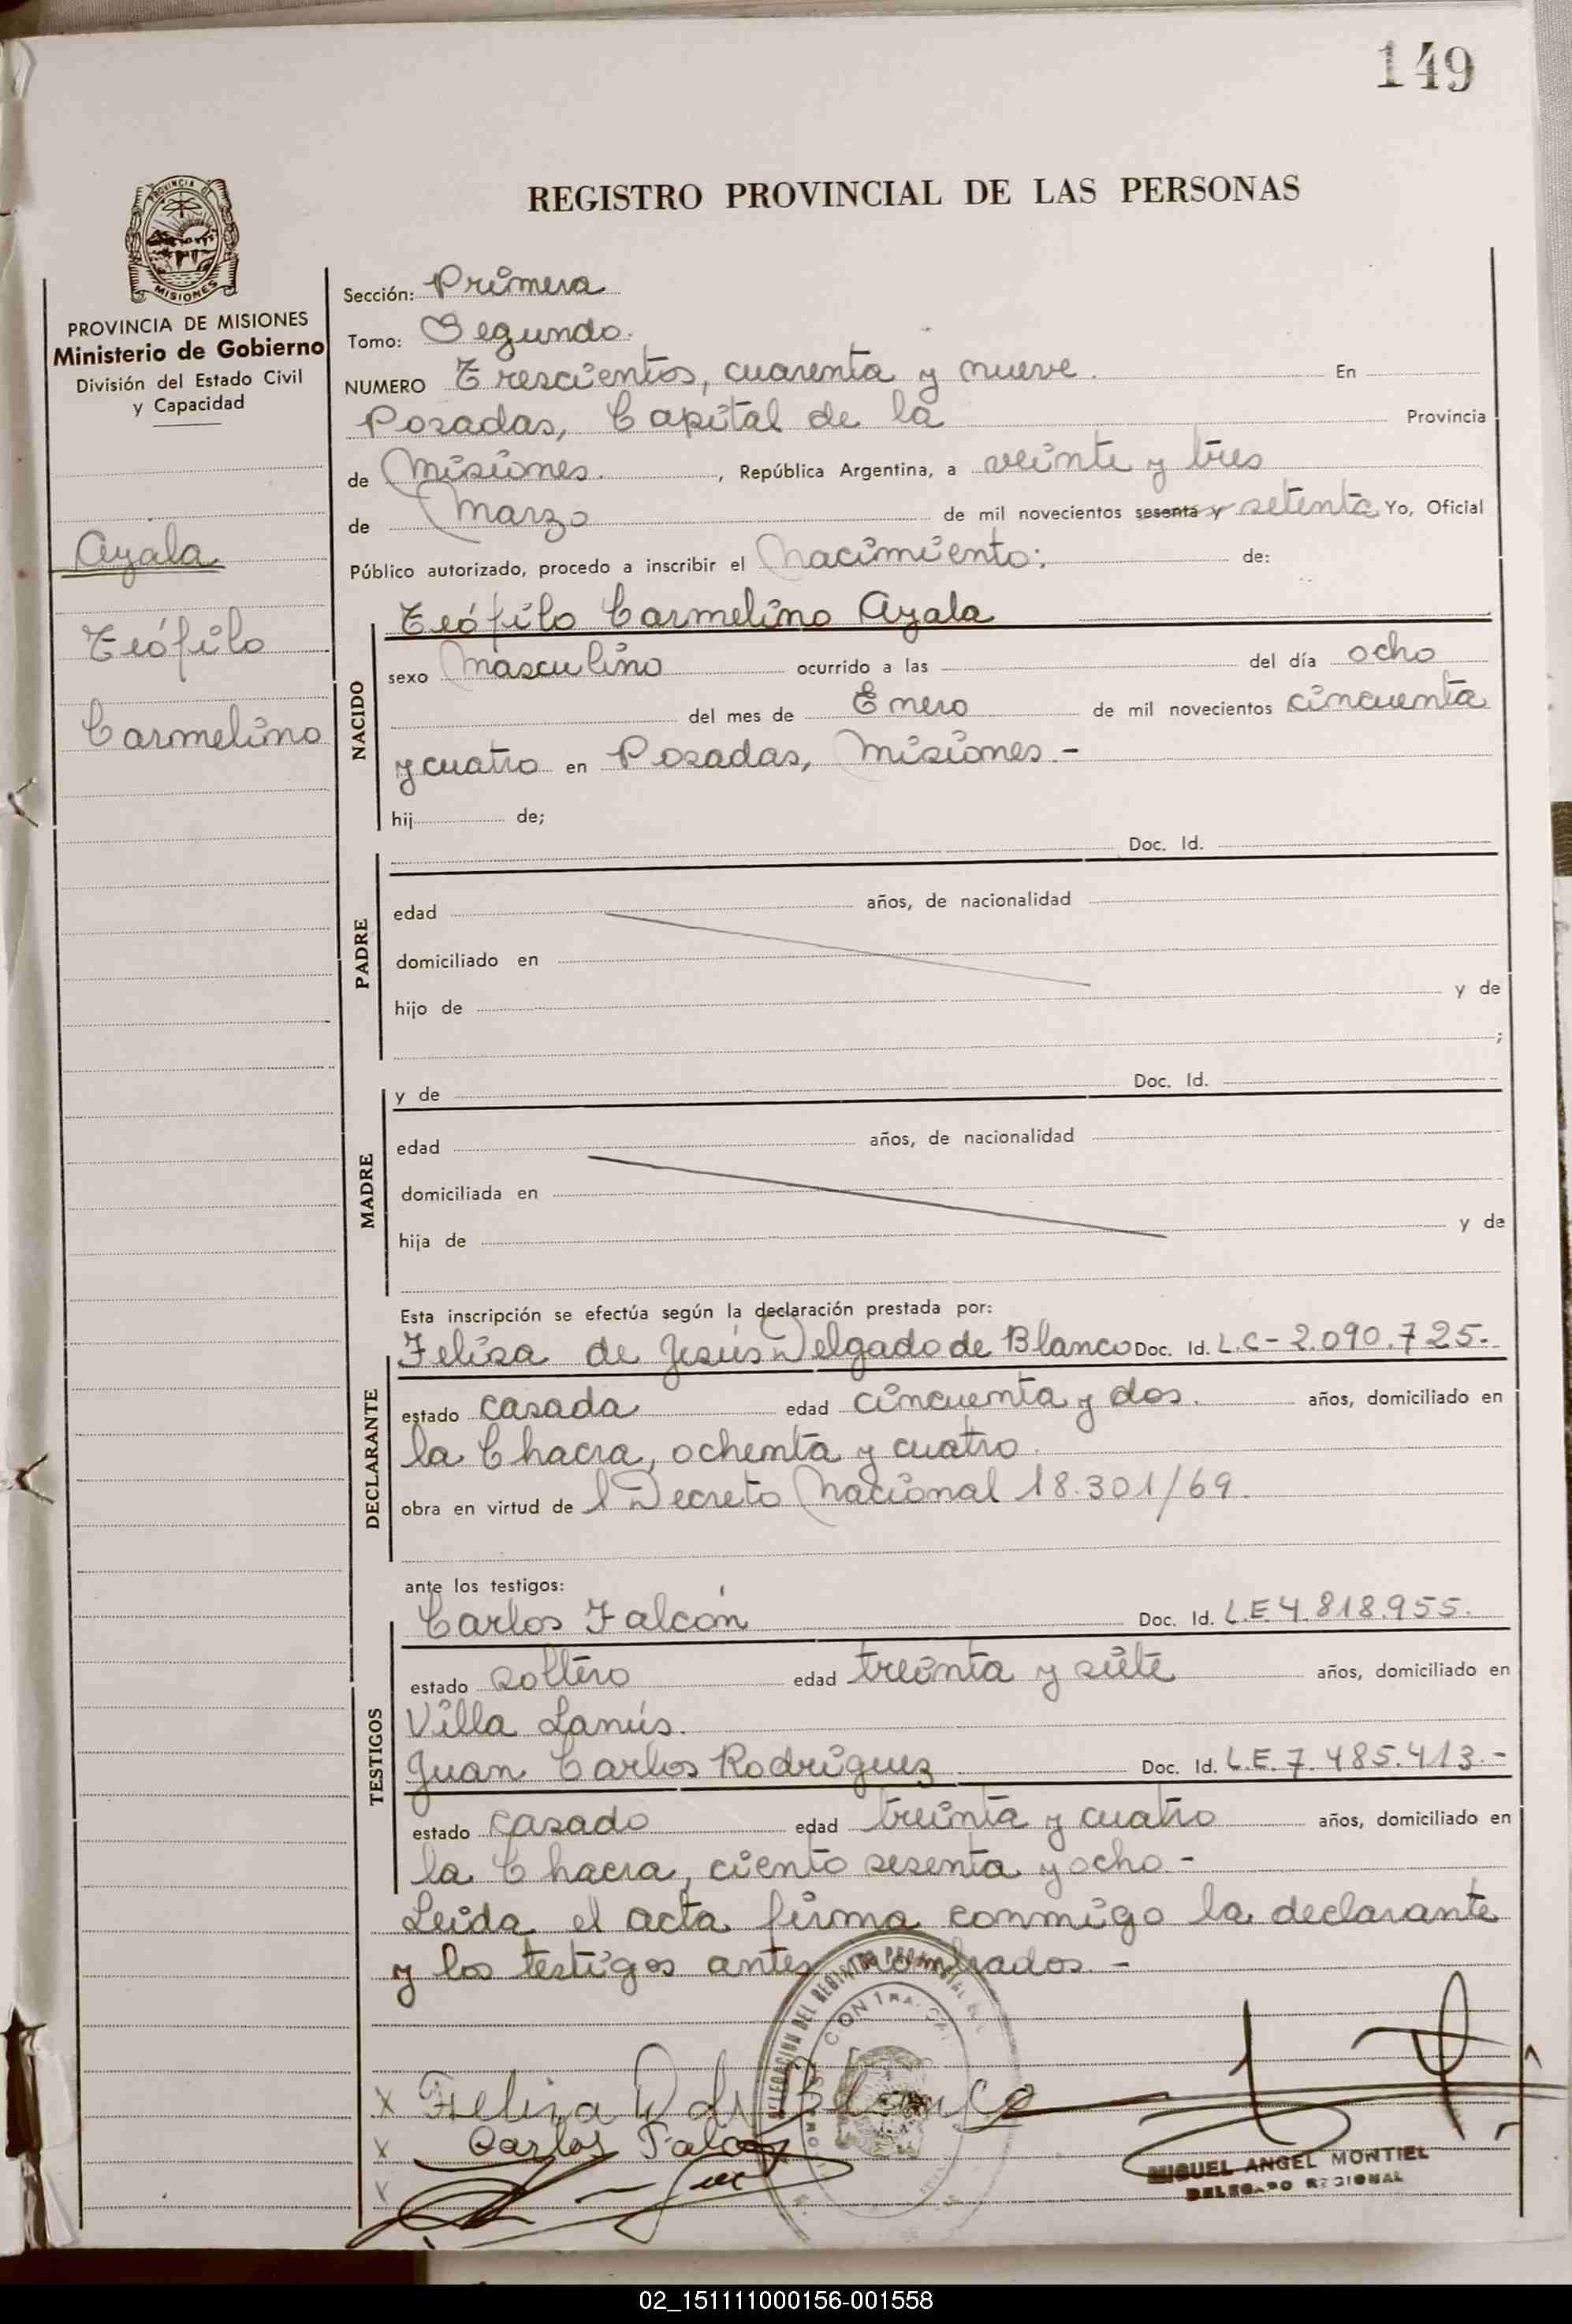 149
REGISTRO PROVINCIAL DE LAS PERSONAS
PROVINCIA DE
MISIONES
PROVINCIA DE MISIONES
Ministerio de Gobierno
División del Estado Civil
y Capacidad
Ayala
Teófilo
Carmelino
Sección: Primera
Tomo: Segundo.
NUMERO Trescientos, cuarenta y nueve. En
Posadas, Capital de la Provincia
de Misiones. , República Argentina, a veinte y tres
de Marzo de mil novecientos sesenta y setenta Yo, Oficial
Público autorizado, procedo a inscribir el Nacimiento: de:
NACIDO
Teófilo Carmelino Ayala
sexo Masculino ocurrido a las del día ocho
del mes de Enero de mil novecientos cincuenta
y cuatro en Posadas, Misiones.-
hij de;
PADRE
Doc. Id.
edad años, de nacionalidad
domiciliado en
hijo de y de
;
MADRE
y de Doc. Id.
edad años, de nacionalidad
domiciliada en
hija de y de
Esta inscripción se efectúa según la declaración prestada por:
DECLARANTE
Felisa de Jesús Delgado de Blanco Doc. Id. L.C-2.090.725.-
estado casada edad cincuenta y dos. años, domiciliado en
la Chacra, ochenta y cuatro.
obra en virtud de l Decreto Nacional 18.301/69.
ante los testigos:
TESTIGOS
Carlos Falcón Doc. Id. L.E.4.818.955.
estado soltero edad treinta y siete años, domiciliado en
Villa Lanús.
Juan Carlos Rodríguez Doc. Id. L.E.7.485.413.-
estado casado edad treinta y cuatro años, domiciliado en
la Chacra, ciento sesenta y ocho-
Leida el acta firma conmigo la declarante
y los testigos antes nombrados.-
DELEGACION DEL REGISTRO PROVINCIAL
x Felisa D de Blanco
x Carlos Falcon
x
MIGUEL ANGEL MONTIEL
DELEGADO REGIONAL
02_151111000156-001558